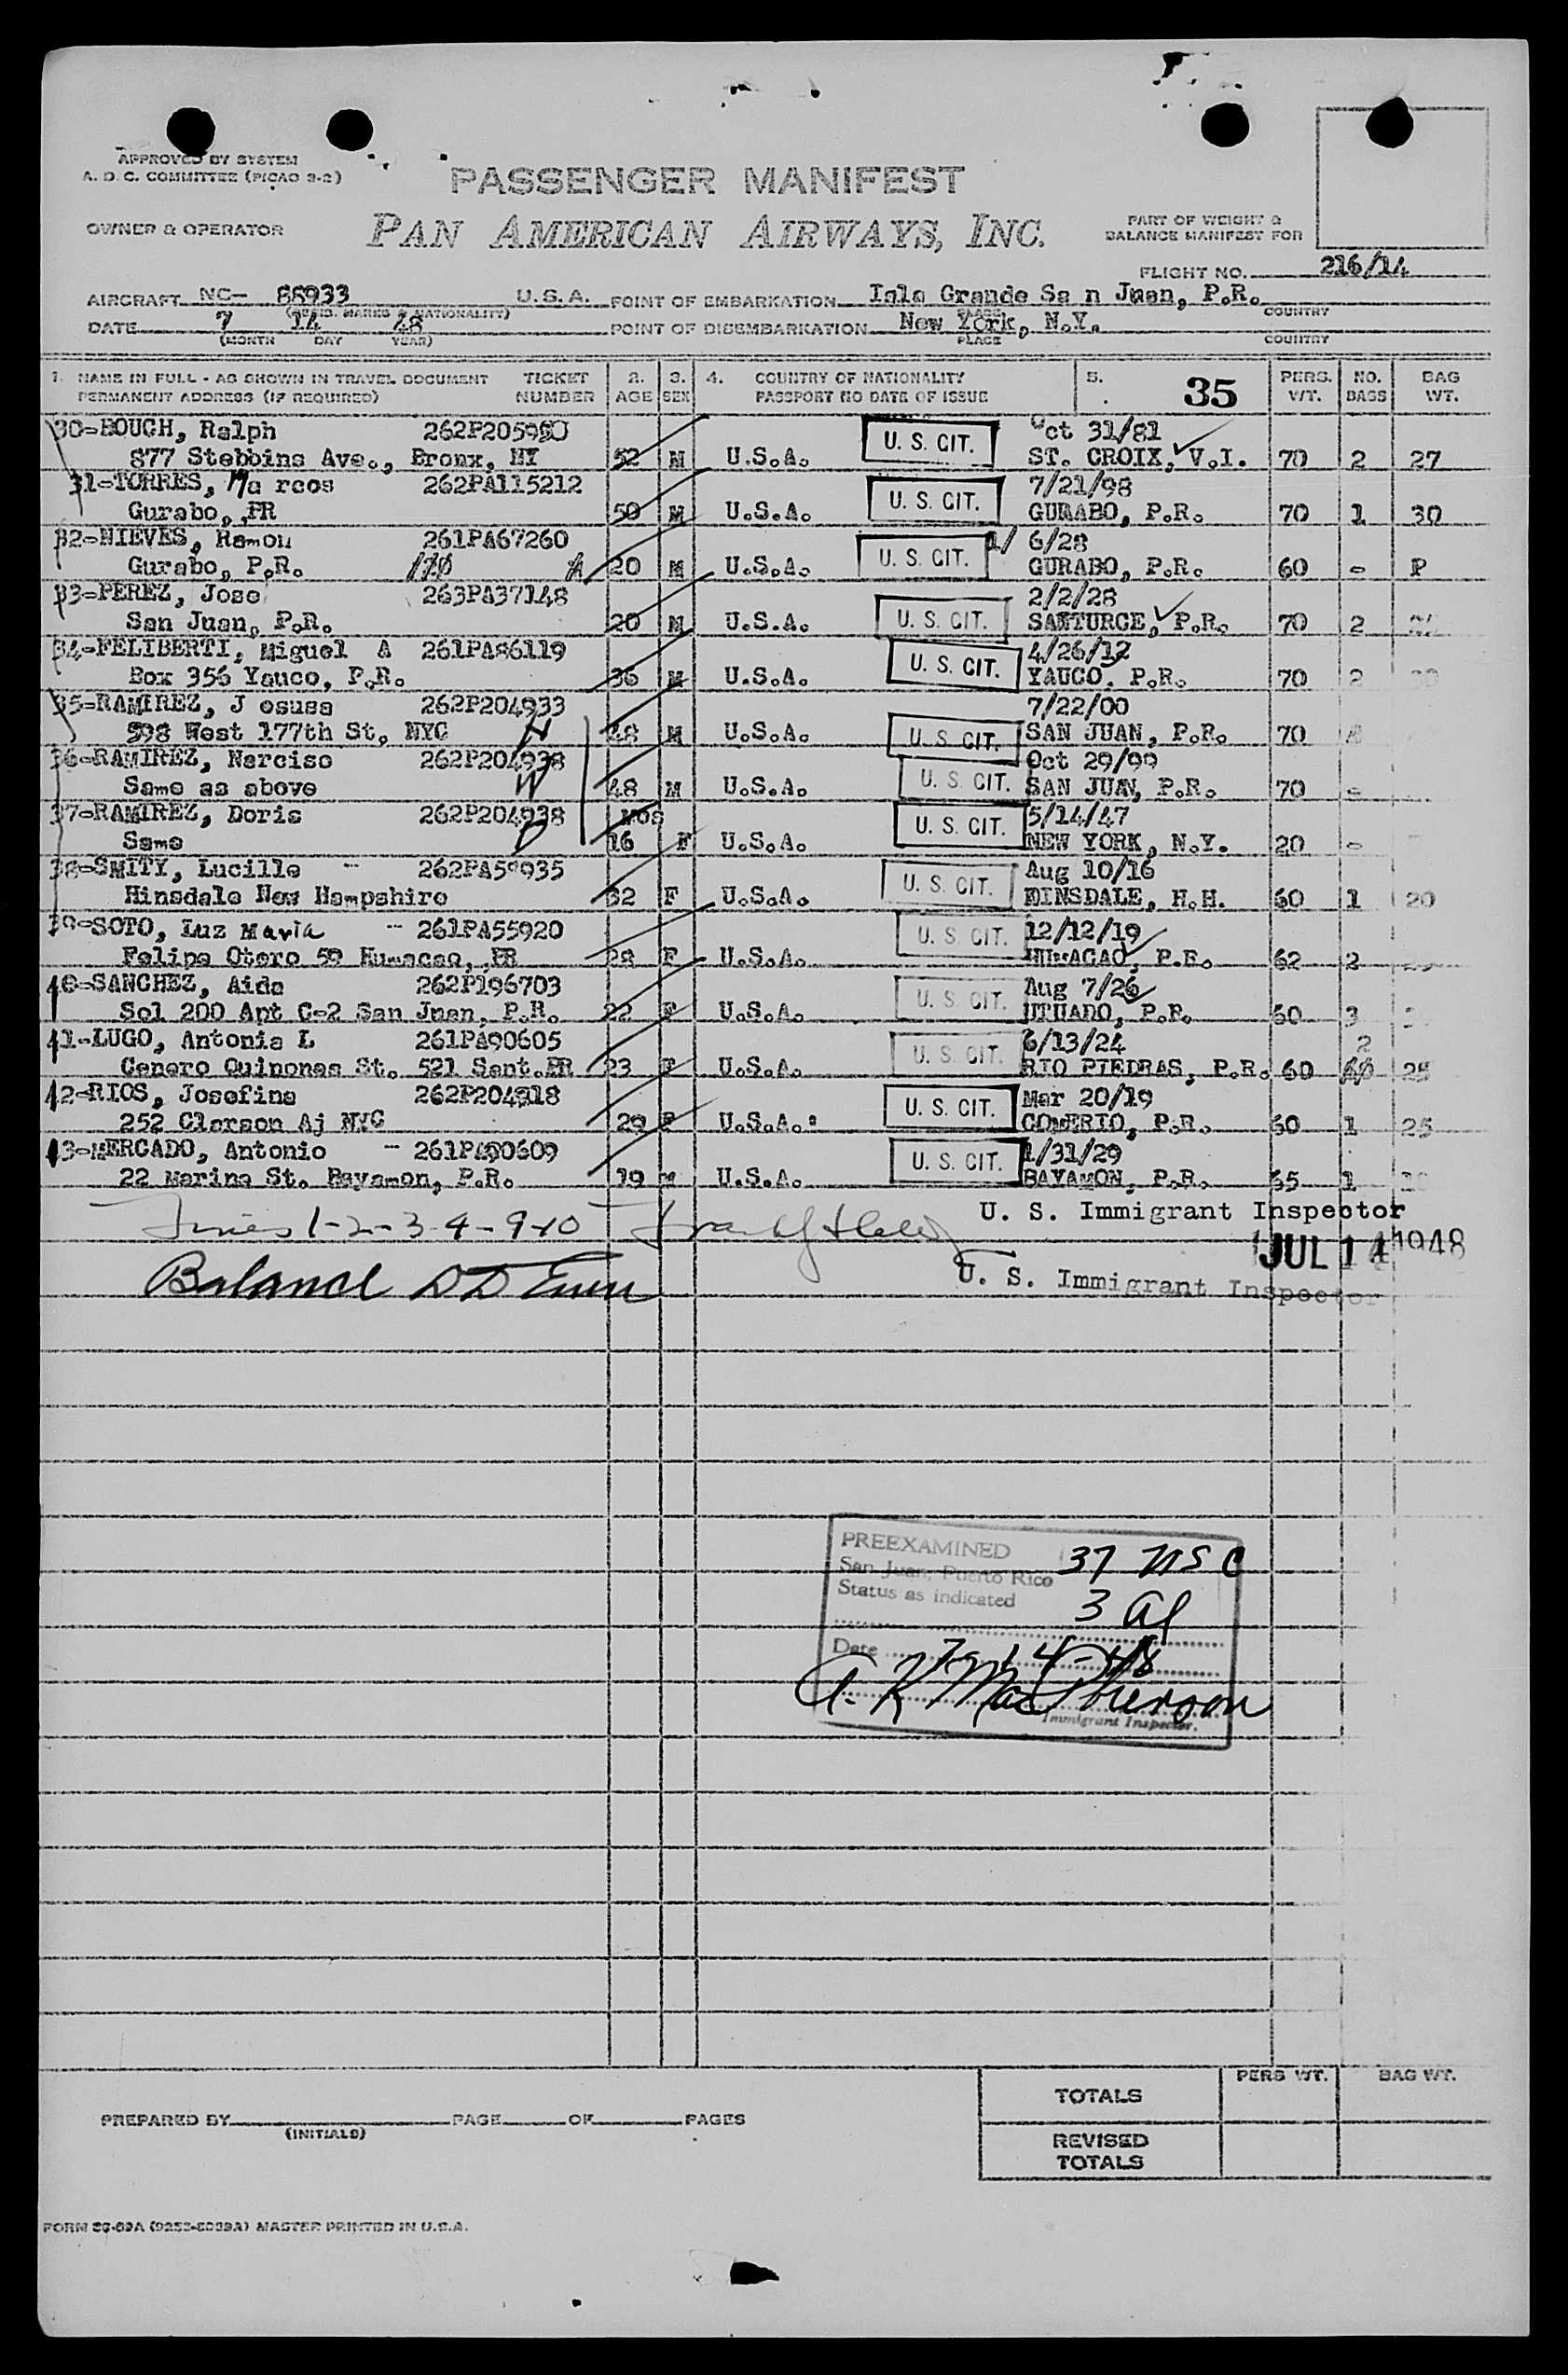 APPROVED BY SYSTEM
A. D. C. COMMITTEE (PICAO 9-2)
PASSENGER MANIFEST
OWNER & OPERATOR
PAN AMERICAN AIRWAYS, INC.
PART OF WEIGHT &
BALANCE MANIFEST FOR
FLIGHT NO. 216/14
AIRCRAFT NC- 88933 U.S.A. POINT OF EMBARKATION Isla Grande Sa n Juan, P.R.
(REGIS. MARKS & NATIONALITY) PLACE COUNTRY
DATE 7 14 48 POINT OF DISEMBARKATION New York, N.Y.
(MONTH DAY YEAR) PLACE COUNTRY
1. NAME IN FULL - AS SHOWN IN TRAVEL DOCUMENT TICKET 2. 3. 4. COUNTRY OF NATIONALITY 5. 35 PERS. NO. BAG
PERMANENT ADDRESS (IF REQUIRED) NUMBER AGE SEX PASSPORT NO DATE OF ISSUE WT. BAGS WT.
30-BOUCH, Ralph 262P205950 U. S. CIT. Oct 31/81
877 Stebbins Ave., Bronx, NY 52 M U.S.A. ST. CROIX, V.I. 70 2 27
31-TORRES, Ma rcos 262PA115212 U. S. CIT. 7/21/98
Gurabo, PR 50 M U.S.A. GURABO, P.R. 70 1 30
32-NIEVES, Ramon 261PA67260 U. S. CIT. 1/ 6/28
Gurabo, P.R. 20 M U.S.A. GURABO, P.R. 60 - P
33-PEREZ, Jose 263PA37148 U. S. CIT. 2/2/28
San Juan, P.R. 20 M U.S.A. SANTURCE, P.R. 70 2
34-FELIBERTI, Miguel A 261PA86119 U. S. CIT. 4/26/12
Box 356 Yauco, P.R. 36 M U.S.A. YAUCO, P.R. 70 2
35-RAMIREZ, J esusa 262P204933 7/22/00
598 West 177th St, NYC 48 M U.S.A. U. S. CIT. SAN JUAN, P.R. 70
36-RAMIREZ, Narciso 262P204938 Oct 29/99
Same as above 48 M U.S.A. U. S. CIT. SAN JUAN, P.R. 70 -
37-RAMIREZ, Doris 262P204938 mos 5/14/47
Same 16 F U.S.A. U. S. CIT. NEW YORK, N.Y. 20 -
38-SMITY, Lucille - Aug 10/16
Hinsdale New Hampshire 32 F U.S.A. U. S. CIT. HINSDALE, N.H. 60 1 20
39-SOTO, Luz Maria - 261PA55920 U. S. CIT. 12/12/19
Felipa Otero 59 Humacao, PR 28 F U.S.A. HUMACAO, P.R. 62 2
40-SANCHEZ, Aida 262P196703 U. S. CIT. Aug 7/26
Sol 200 Apt C-2 San Juan, P.R. 22 F U.S.A. UTUADO, P.R. 60 3
41-LUGO, Antonia L 261PA90605 U. S. CIT. 6/13/24 2
Cenero Quinones St. 521 Sant. PR 23 F U.S.A. RIO PIEDRAS, P.R. 60 25
42-RIOS, Josefina 262P204918 U. S. CIT. Mar 20/19
252 Clerson Aj NYC 29 F U.S.A. COMERIO, P.R. 60 1 25
43-MERCADO, Antonio - 261PA90609 U. S. CIT. 1/31/29
22 Marina St. Bayamon, P.R. 19 M U.S.A. BAYAMON, P.R. 65 1
Lines 1-2-3-4-9-10 U. S. Immigrant Inspector
JUL 14 1948
Balance U. S. Immigrant Inspector
PREEXAMINED 37 USC
San Juan, Puerto Rico
Status as indicated 3 al
Date 7-14-48
A. K MacPherson
Immigrant Inspector.
TOTALS PERS WT. BAG WT.
PREPARED BY PAGE OF PAGES
(INITIALS)
REVISED
TOTALS
MASTER PRINTED IN U.S.A.